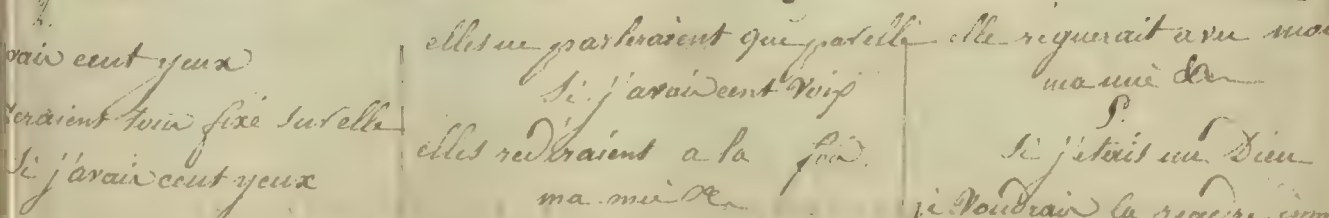 2.
avais cent yeux
seraient tous fixé sur elle
Si j'avais cent yeux
elles ne parleraient que par elle
Si j'avais cent voix
elles rediraient a la fois.
ma mie &c
elle regnerait avec moi
ma mie &c
5.
Si j'étais un Dieu
je voudrais la rendre imm